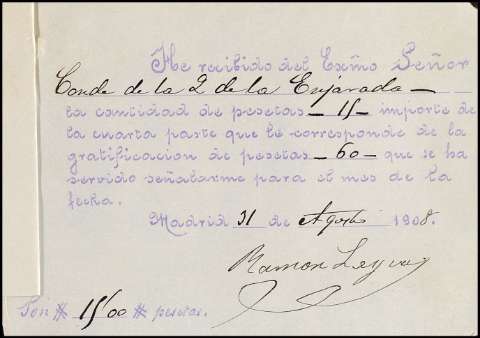 He recibido del Exmo Señor
Conde de la 2 de la Enjarada
la cantidad de pesetas 15 importe de
la cuarta parte que le corresponde de la
gratificacion de pesetas 60 que se ha
servido señalarme para el mes de la
fecha.
Madrid 31 de Agosto 1908.
Ramon
Son # 15'00 # pesetas.